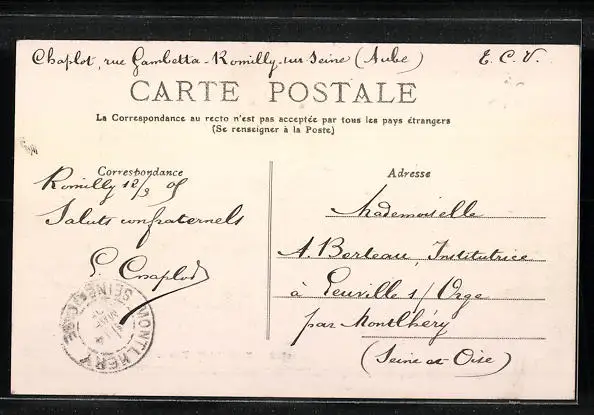 Chaplot, rue Gambetta - Romilly-sur-Seine (Aube) E. C. V.
CARTE POSTALE
La Correspondance au recto n'est pas acceptée par tous les pays étrangers
(Se renseigner à la Poste)
Correspondance
Romilly 12/3 05
Saluts confraternels
Chaplot
MONTLHERY
SEINE-ET-OISE
Adresse
Mademoiselle
A. Berteau, Institutrice
à Leuville s/ Orge
par Montlhéry
(Seine et Oise)